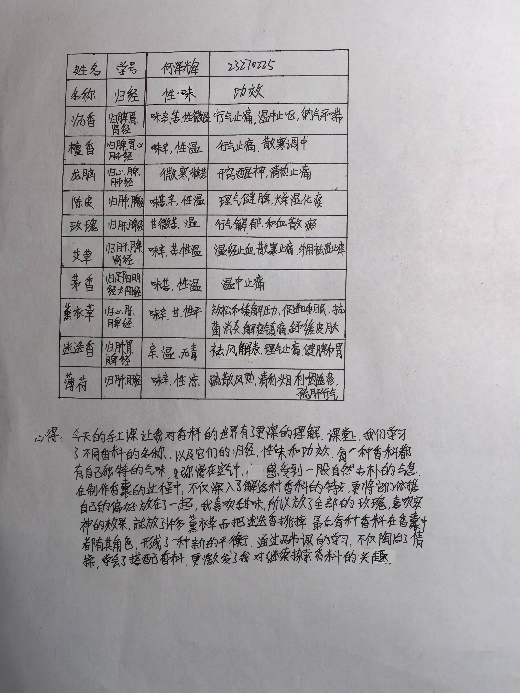 姓名 学号 何泽峰 23270225
名称 归经 性·味 功效
沉香 归脾胃肾经 味辛,苦,性微温 行气止痛,温中止呕,纳气平喘
檀香 归脾胃心肺经 味辛,性温 行气止痛,散寒调中
龙脑 归心,脾,肺经 微寒,辛苦 开窍醒神,清热止痛
陈皮 归肺,脾经 味苦辛,性温 理气健脾,燥湿化痰
玫瑰 归肝,脾经 甘微苦,温 行气解郁,和血散瘀
艾草 归肝,脾肾经 味辛,苦性温 温经止血,散寒止痛,外用祛湿止痒
茅香 味苦,性温 温中止痛
薰衣草 归心,肝,脾经 味辛,甘,性平 放松和缓解压力,促进睡眠,抗菌消炎,解痉镇痛,舒缓皮肤
迷迭香 归肺胃脾经 辛,温,无毒 祛风解表,理气止痛,健脾和胃
薄荷 归肺肝经 味辛,性凉 疏散风热,清利头目,利咽透疹,疏肝行气
心得: 今天的手工课让我对香料的世界有了更深的理解,课堂上,我们学习
了不同香料的名称,以及它们的归经,性味和功效,每一种香料都
有自己独特的气味,感受到一股自然古朴的气息
在制作香囊的过程中,不仅深入了解每种香料的特点,更将它们依据
自己的偏好放在了一起,我喜欢甜味,所以放了全部的玫瑰,喜欢安
神的效果,就放了许多薰衣草而把迷迭香排掉,最后各种香料在香囊中
有随其角色,形成了一种新的平衡,通过两节课的学习,不仅陶冶了情
操,学会了搭配香料,更激发了我对继续探索香料的兴趣.